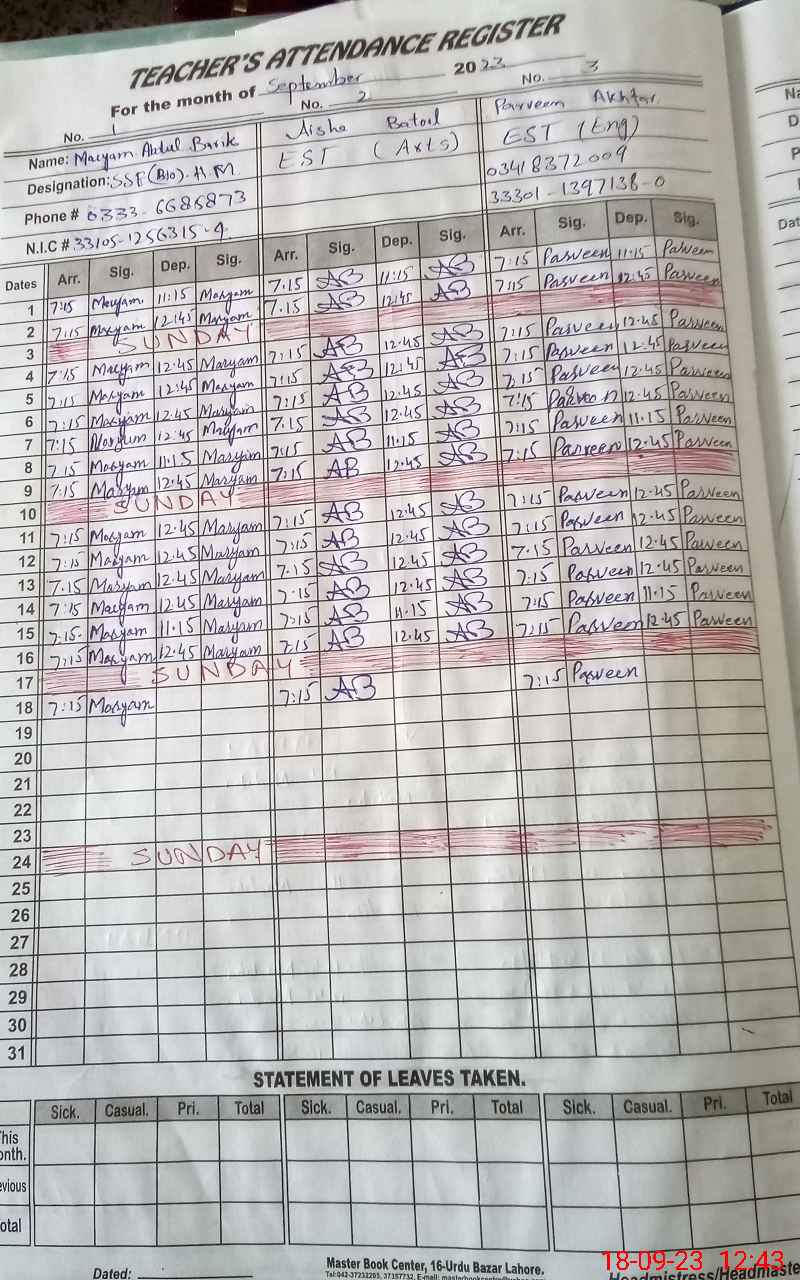 TEACHER'S ATTENDANCE REGISTER
For the month of September 2023
No. 1 No. 2 No. 3
Name: Maryam Abdul Barik Aisha Batool Parveen Akhtar
Designation: SSE(Bio). H.M EST (Arts) EST (Eng)
Phone # 0333-6685873 03418372009
N.I.C # 33105-1256315-4 33301-1397138-0
Dates Arr. Sig. Dep. Sig. Arr. Sig. Dep. Sig. Arr. Sig. Dep. Sig.
1 7:15 Maryam 11:15 Maryam 7.15 AB 11:15 AB 7:15 Parveen 11:15 Parveen
2 7:15 Maryam 12:45 Maryam 7.15 AB 12:45 AB 7:15 Parveen 12:45 Parveen
3 SUNDAY
4 7:15 Maryam 12.45 Maryam 7:15 AB 12.45 AB 7:15 Parveen 12.45 Parveen
5 7:15 Maryam 12:45 Maryam 7:15 AB 12:45 AB 7:15 Parveen 12.45 Parveen
6 7:15 Maryam 12.45 Maryam 7:15 AB 12.45 AB 7:15 Parveen 12.45 Parveen
7 7:15 Maryam 12:45 Maryam 7.15 AB 12.45 AB 7:15 Parveen 12.45 Parveen
8 7:15 Maryam 11.15 Maryam 7:15 AB 11.15 AB 7:15 Parveen 11.15 Parveen
9 7:15 Maryam 12.45 Maryam 7:15 AB 12.45 AB 7:15 Parveen 12.45 Parveen
10 SUNDAY
11 7:15 Maryam 12.45 Maryam 7:15 AB 12.45 AB 7:15 Parveen 12.45 Parveen
12 7:15 Maryam 12.45 Maryam 7:15 AB 12.45 AB 7:15 Parveen 12.45 Parveen
13 7.15 Maryam 12.45 Maryam 7.15 AB 12.45 AB 7.15 Parveen 12.45 Parveen
14 7:15 Maryam 12.45 Maryam 7.15 AB 12.45 AB 7:15 Parveen 12.45 Parveen
15 7:15. Maryam 11.15 Maryam 7:15 AB 11.15 AB 7:15 Parveen 11.15 Parveen
16 7:15 Maryam 12.45 Maryam 7:15 AB 12.45 AB 7:15 Parveen 12.45 Parveen
17 SUNDAY
18 7:15 Maryam 7:15 AB 7:15 Parveen
19
20
21
22
23
24 SUNDAY
25
26
27
28
29
30
31
STATEMENT OF LEAVES TAKEN.
Sick. Casual. Pri. Total Sick. Casual. Pri. Total Sick. Casual. Pri. Total
This
onth.
evious
otal
Dated:
Master Book Center, 16-Urdu Bazar Lahore.
Headmistress/Headmaste
18-09-23 12:43